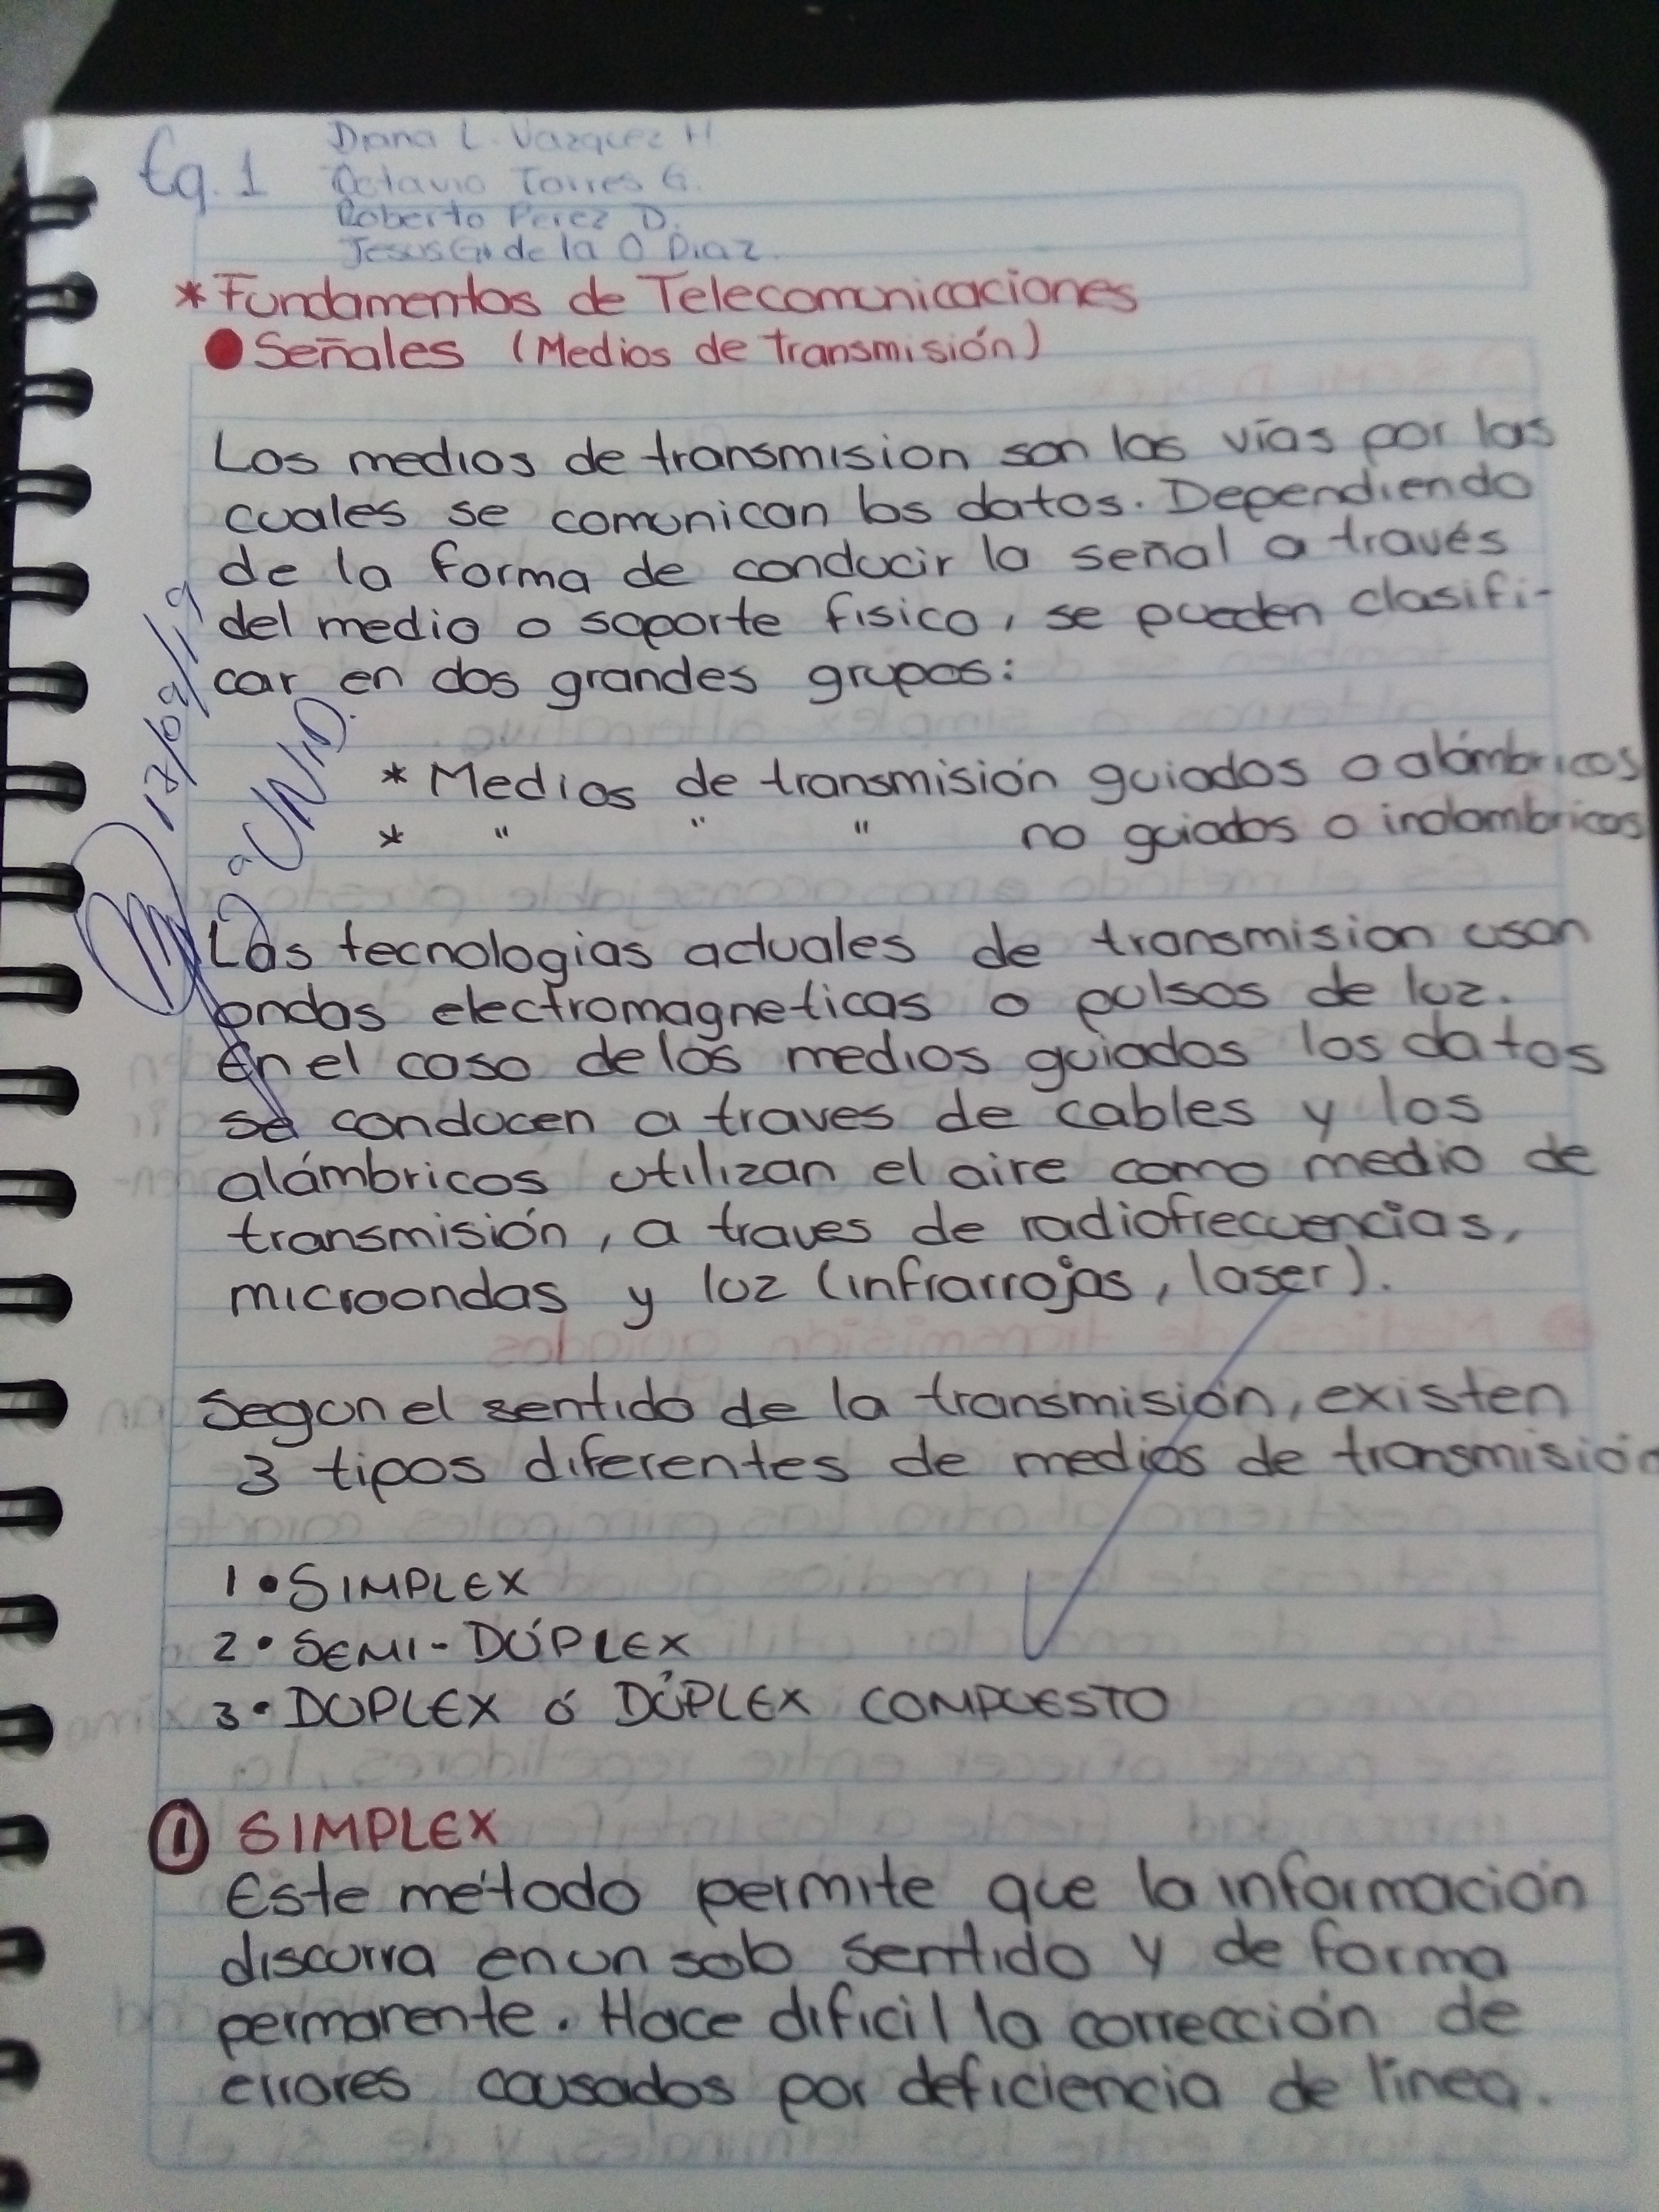 Eq. 1
Diana L. Vazquez H.
Octavio Torres G.
Roberto Perez D.
Jesus G. de la O Diaz.
* Fundamentos de Telecomunicaciones
● Señales (Medios de transmisión)
Los medios de transmision son las vías por las
cuales se comunican los datos. Dependiendo
de la forma de conducir la señal a través
del medio o soporte fisico, se pueden clasifi-
car en dos grandes grupos:
* Medios de transmisión guiados o alámbricos
* " " " no guiados o inalambricos
17/09/19
Las tecnologias actuales de transmision usan
ondas electromagneticas o pulsos de luz.
En el caso de los medios guiados los datos
se conducen a traves de cables y los
alámbricos utilizan el aire como medio de
transmisión, a traves de radiofrecuencias,
microondas y luz (infrarrojas, laser).
Segun el sentido de la transmisión, existen
3 tipos diferentes de medios de transmisión
1 • SIMPLEX
2 • SEMI-DÚPLEX
3 • DUPLEX ó DÚPLEX COMPUESTO
① SIMPLEX
Este método permite que la información
discurra en un solo sentido y de forma
permanente. Hace dificil la corrección de
errores causados por deficiencia de línea.